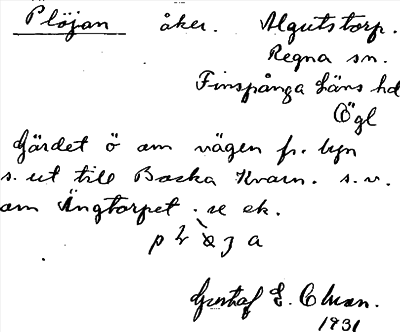 Plöjan åker. Algutstorp.
Regna sn.
Finspånga läns hd
Ögl
Gärdet ö om vägen fr. byn
s. ut till Backa Kvarn. s.v.
om Ängtorpet. se ek.
Gustaf E.
1931